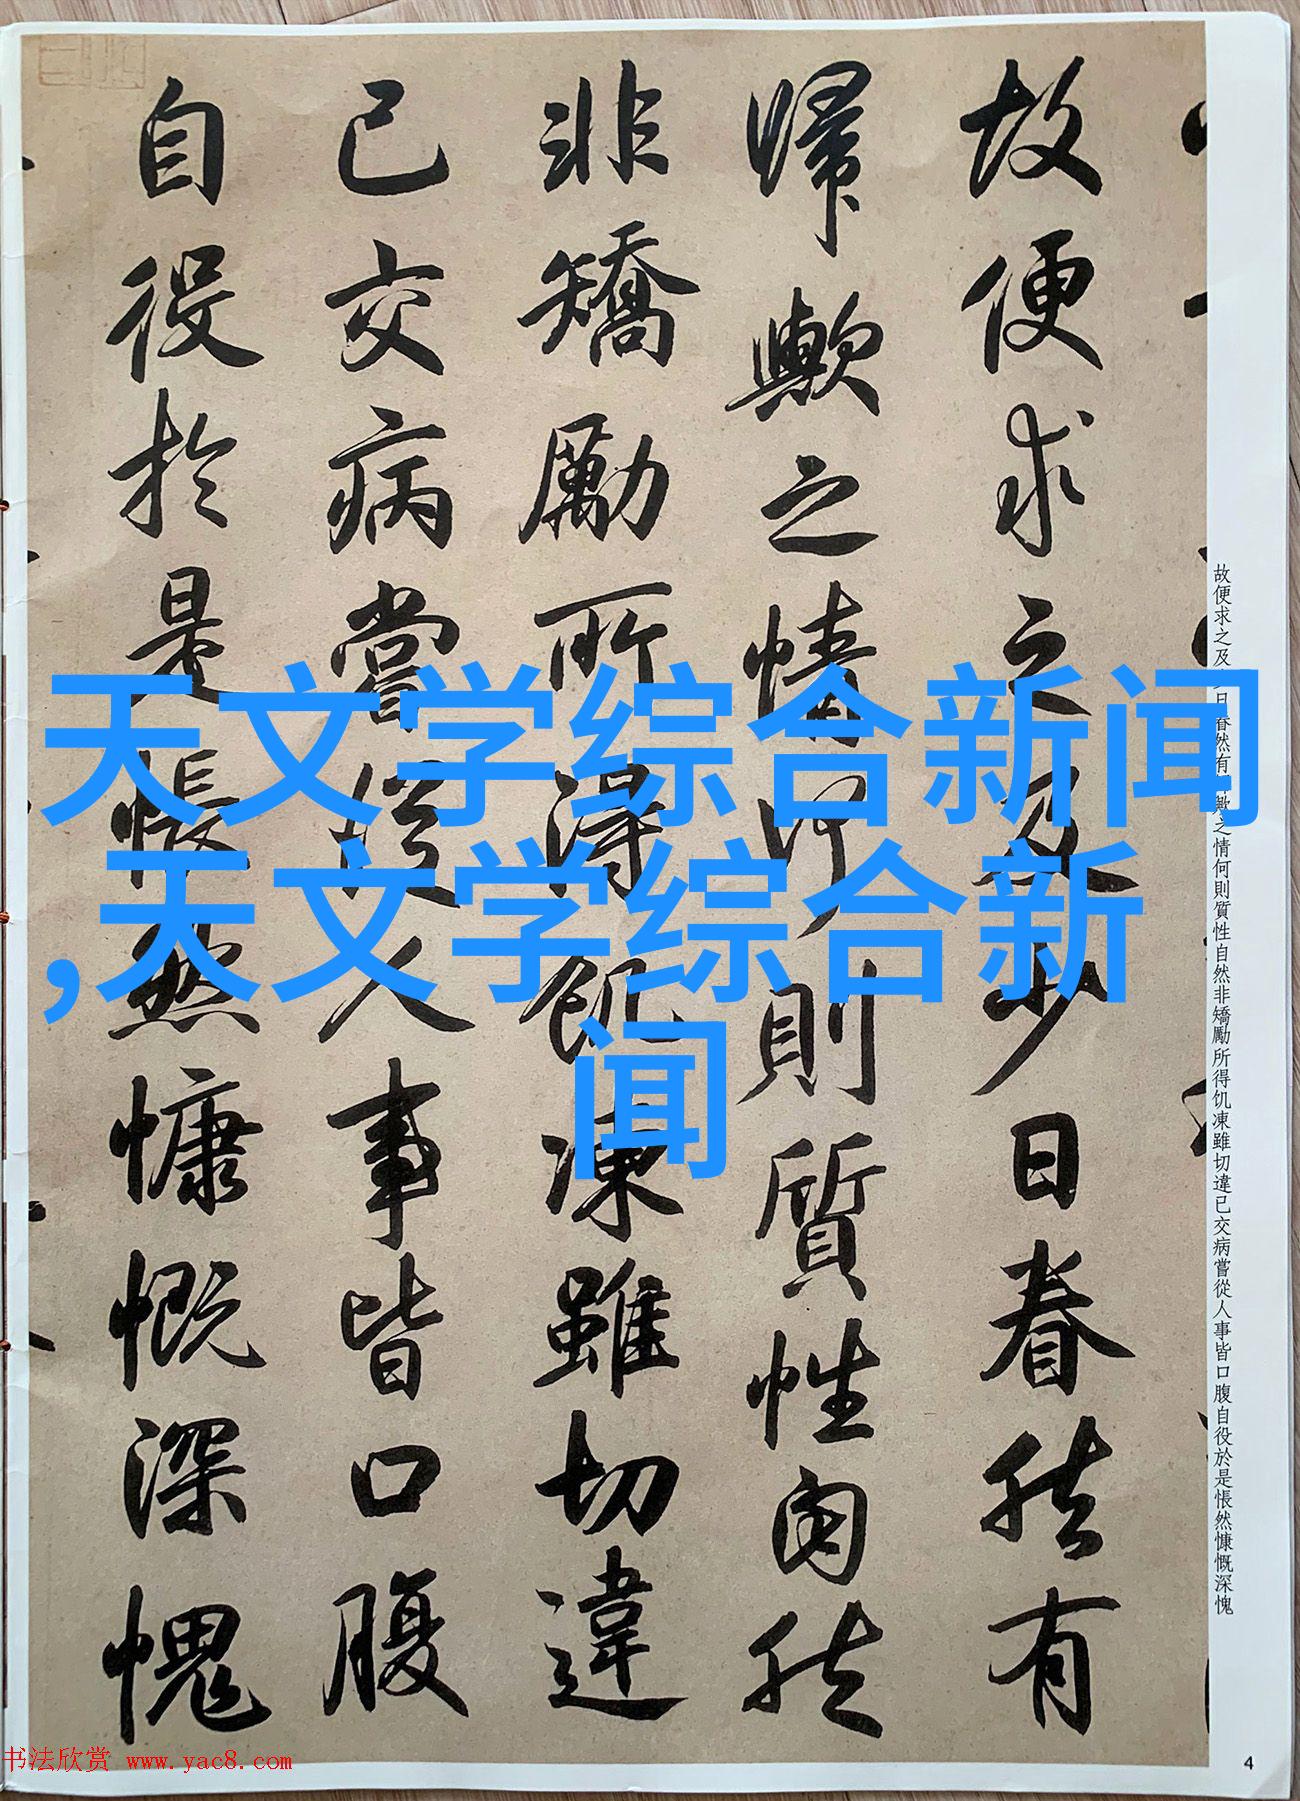 故便求之及少日眷然有
歸歟之情何則質性自然
非矯勵所得飢凍雖切違
己交病嘗從人事皆口腹
自役於是悵然慷慨深愧
故便求之及少日眷然有歸歟之情何則質性自然非矯勵所得饥凍雖切違已交病嘗從人事皆口腹自役於是悵然慷慨深愧
天文学综合新闻
,天文学综合新
闻
书法欣赏 www.yac8.com
4